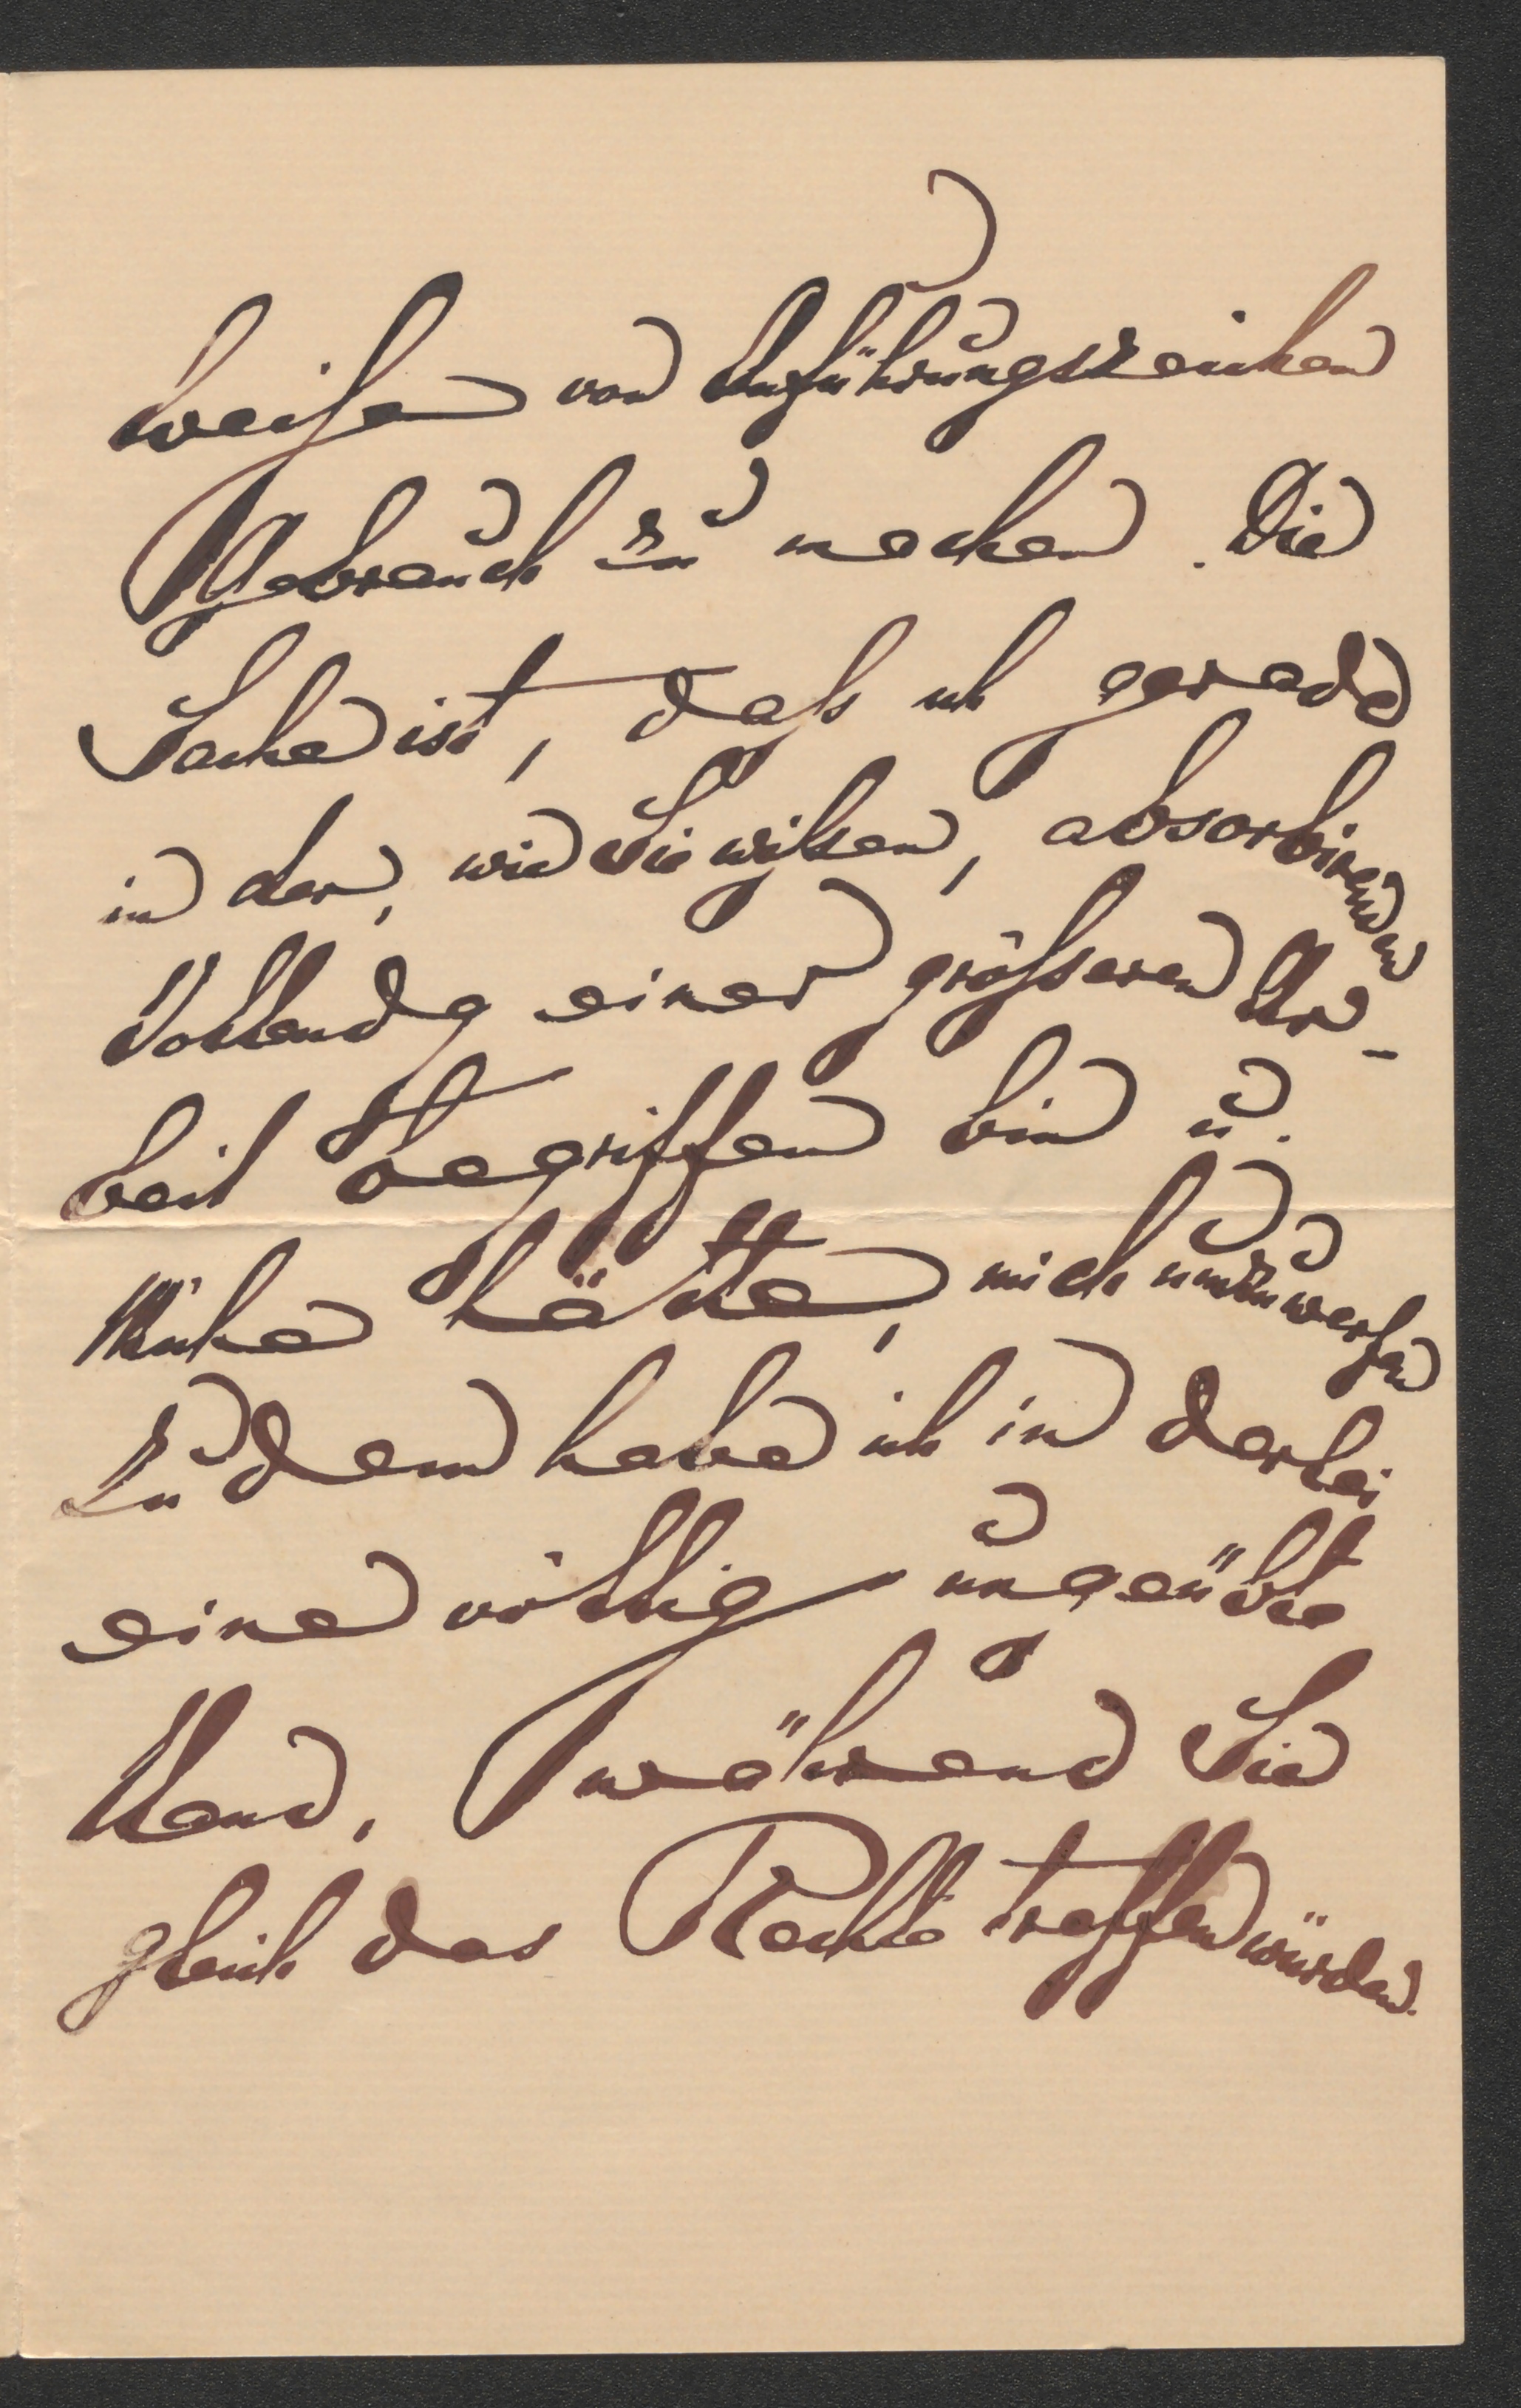 weisen von Anführungszeichen
Gebrauch zu machen. Die
Sache ist, daß ich gerade
in der, wie Sie wißsen, absorbirenden
Vollendg einer größseren Ar-
beit begriffen bin u.
Mühe hätte, mich umzuwerfen
Zudem habe ich in derlei
eine völlig ungeübte
Hand, während Sie
gleich das Rechte treffen würden.